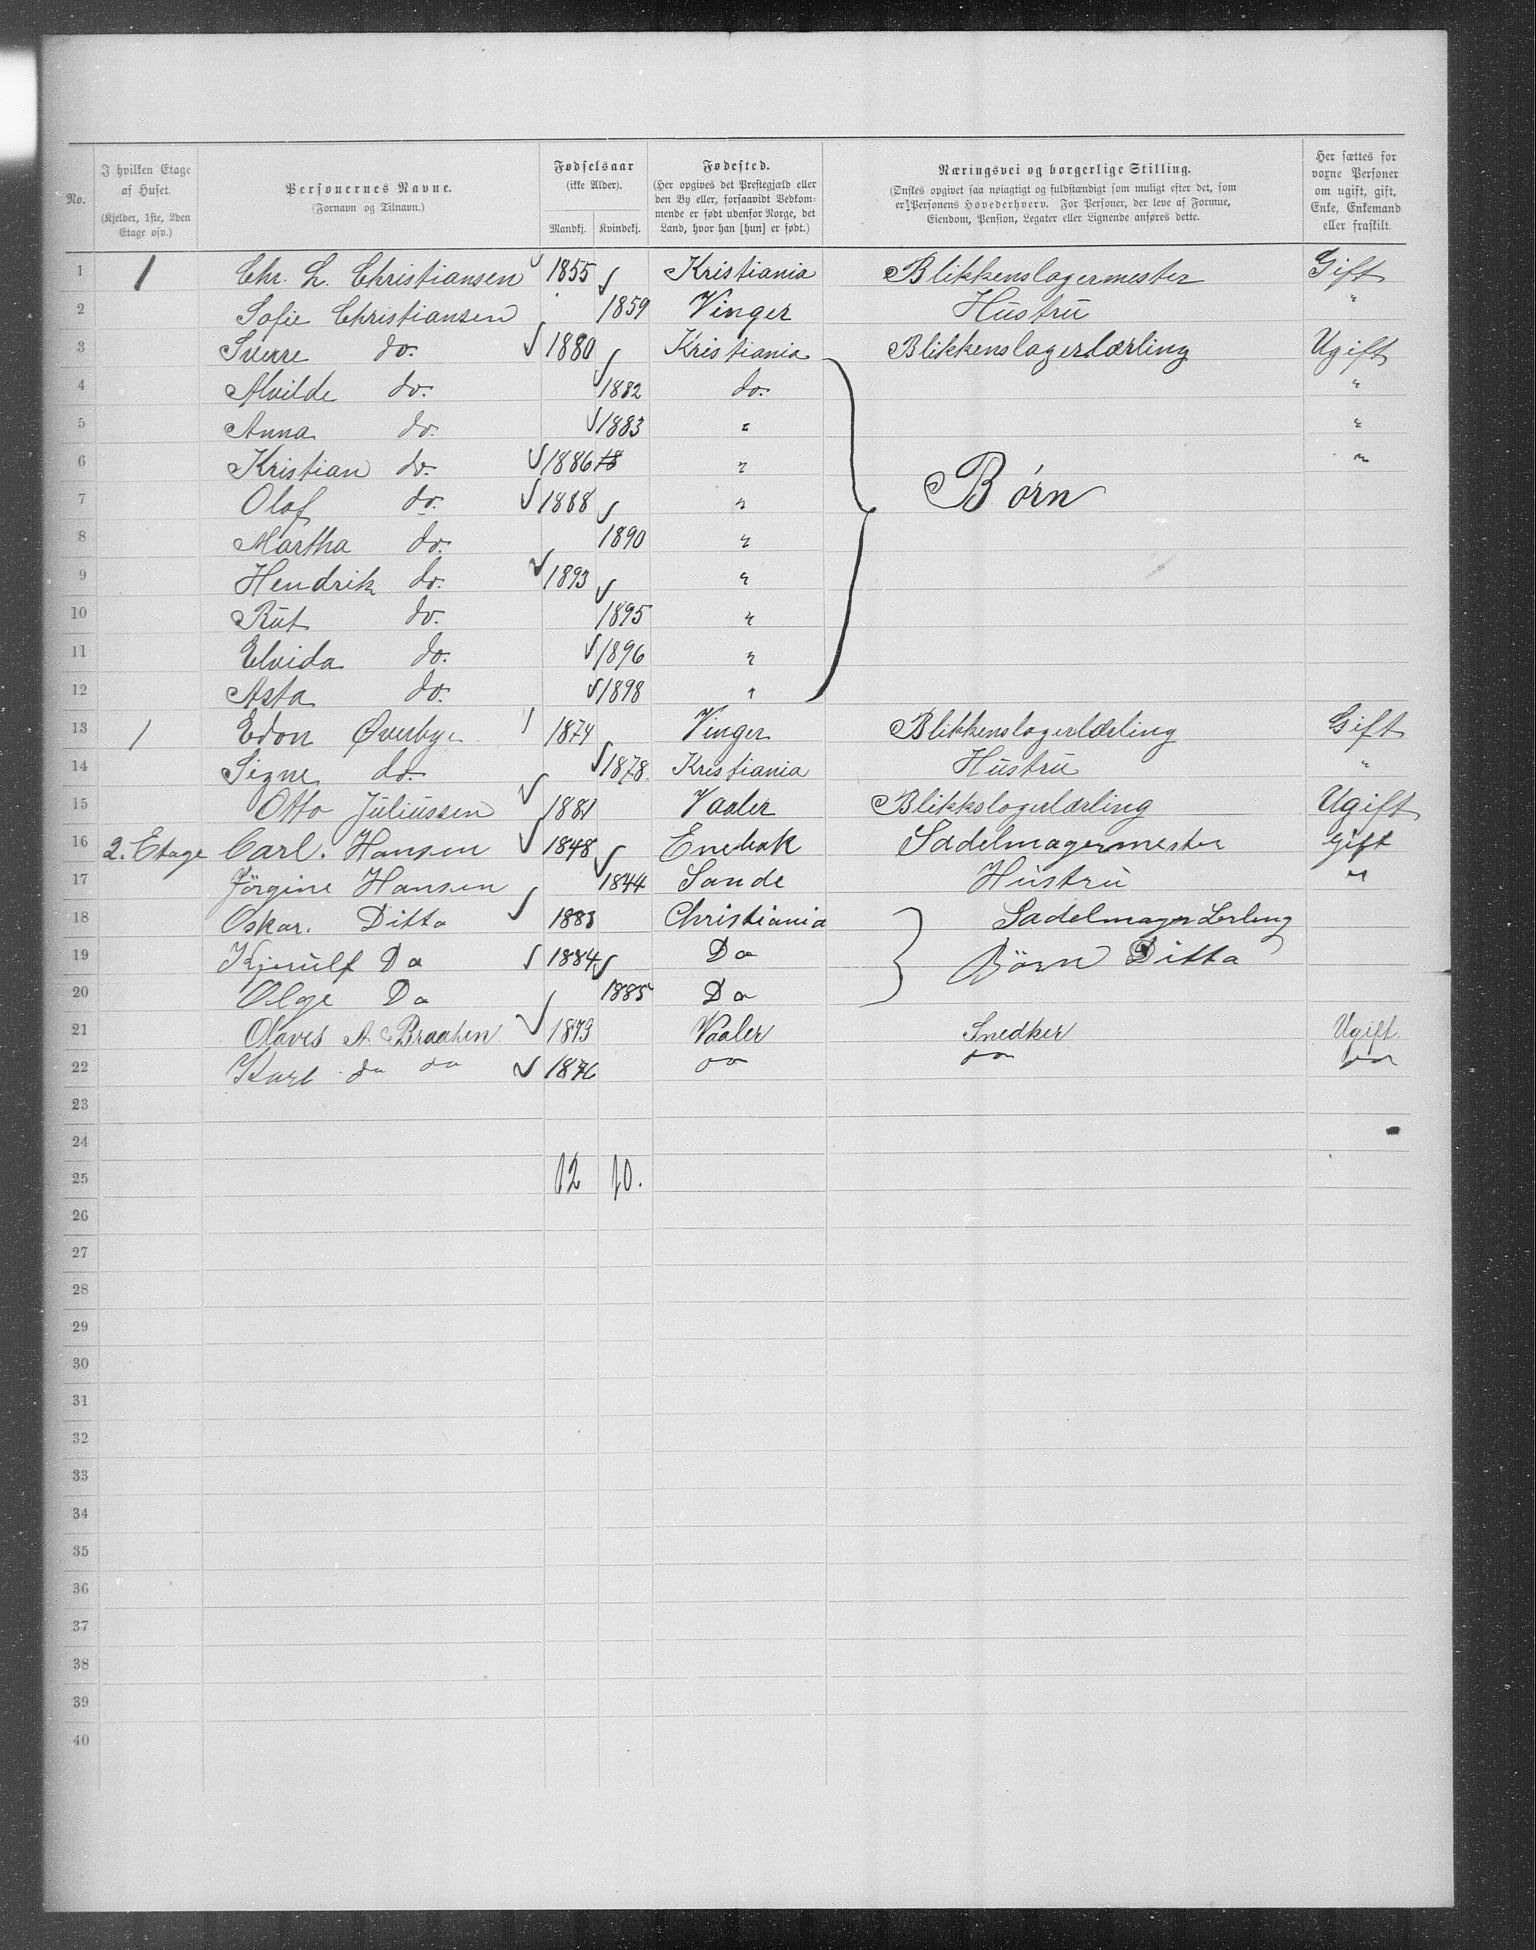 No.
I hvilken Etage af Huset. (Kjelder, 1ste, 2den Etage osv.)
Personernes Navne. (Fornavn og Tilnavn.)
Fødselsaar (ikke Alder). Mandkj. Kvindekj.
Fødested. (Her opgives det Prestegjæld eller den By eller, forsaavidt Vedkommende er født udenfor Norge, det Land, hvor han [hun] er født.)
Næringsvei og borgerlige Stilling. (Ønskes opgivet saa nøiagtigt og fuldstændigt som muligt efter det, som er Personens Hovederhverv. For Personer, der leve af Formue, Eiendom, Pension, Legater eller Lignende anføres dette.
Her sættes for voxne Personer om ugift, gift, Enke, Enkemand eller fraskilt.
1 1 Chr. L. Christiansen 1855 Kristiania Blikkenslagermester Gift
2 Sofie Christiansen 1859 Vinger Hustru "
3 Sverre do. 1880 Kristiania Blikkenslagerlærling Ugift
4 Alvilde do. 1882 do. "
5 Anna do. 1883 " "
6 Kristian do. 1886 18 " "
7 Olaf do. 1888 " Børn
8 Martha do. 1890 "
9 Hendrik do. 1893 "
10 Rut do. 1895 "
11 Elvida do. 1896 "
12 Asta do. 1898 "
13 1 Edon Øverbye 1874 Vinger Blikkenslagerlærling Gift
14 Signe do. 1878 Kristiania Hustru "
15 Otto Juliussen 1881 Vaaler Blikkslagerlærling Ugift
16 2. Etage Carl. Hansen 1848 Enebak Sadelmagermester Gift
17 Jörgine Hansen 1844 Sande Hustru "
18 Oskar. Ditto 1883 Christiania Sadelmager Lerling
19 Kjerulf Do 1884 Do Börn Ditto
20 Olge Do 1885 Do
21 Olaves A. Braaten 1873 Vaaler Snedker Ugift.
22 Karl do do 1876 do do do
23
24
25 12 10.
26
27
28
29
30
31
32
33
34
35
36
37
38
39
40